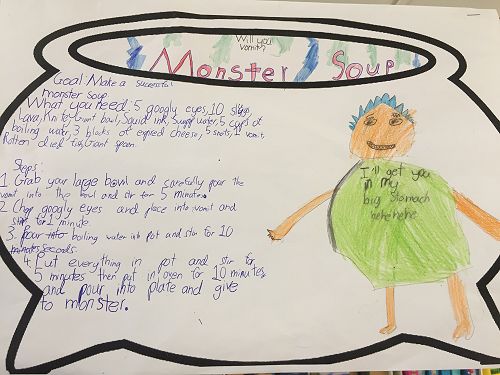 Will you
vomit?
Monster Soup
Goal: Make a successful
monster soup
What you need: 5 googly eyes, 10 slugs,
Lava, Giant bowl, Squid ink, Swamp water, 5 cups of
boiling water, 3 blocks of expired cheese, 5 snots, 1 vomit,
Rotten dried fish, Giant spoon.
Steps:
1. Grab your large bowl and carefully pour the
vomit into the bowl and stir for 5 minutes.
2. Chop googly eyes and place into vomit and
stir for 1 minute.
3. Pour into boiling water into pot and stir for 10
minutes seconds.
4. Put everything in pot and stir for
5 minutes then put in oven for 10 minutes
and pour into plate and give
to monster.
I'll get you
in my
big stomach
hehehehe